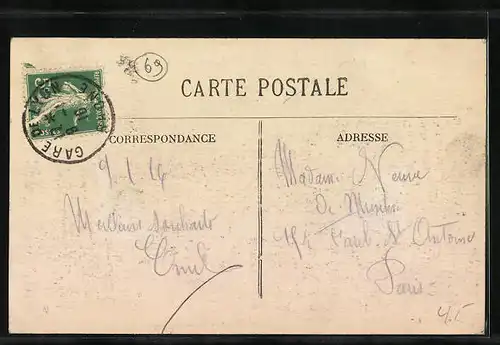 69
CARTE POSTALE
GARE DE LYON
CORRESPONDANCE
ADRESSE
9/1/14
Meilleurs souhaits
Emile
Madame Veuve
De
194 Faub. St Antoine
Paris